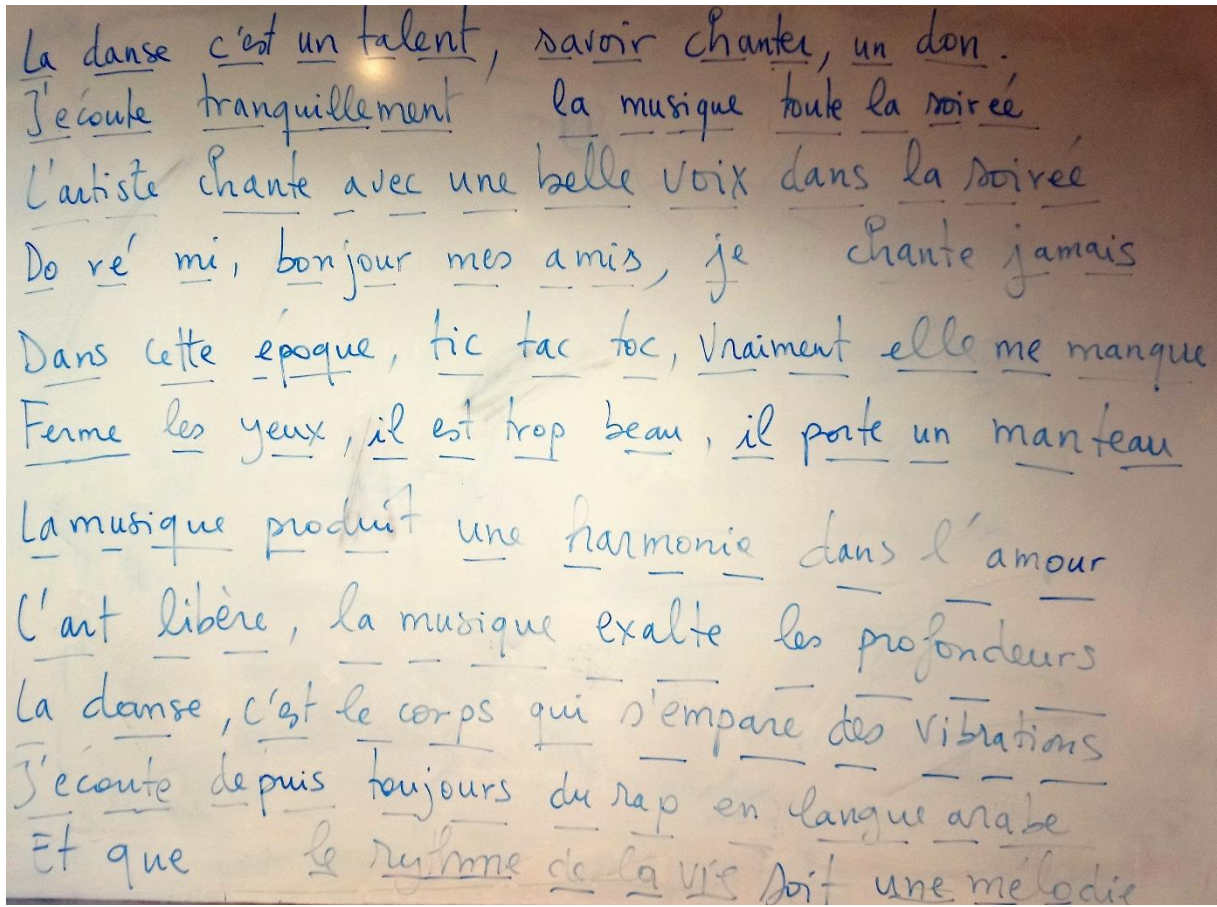 La danse c'est un talent, savoir chanter, un don.
J'écoute tranquillement la musique toute la soireé
L'artiste chante avec une belle voix dans la soireé
Do ré mi, bonjour mes amis, je chante jamais
Dans cette époque, tic tac toc, vraiment elle me manque
Ferme les yeux, il est trop beau, il porte un manteau
La musique produit une harmonie dans l'amour
L'art libère, la musique exalte les profondeurs
La danse, c'est le corps qui s'empare des vibrations
J'écoute depuis toujours du rap en langue arabe
Et que le rythme de la vie soit une mélodie